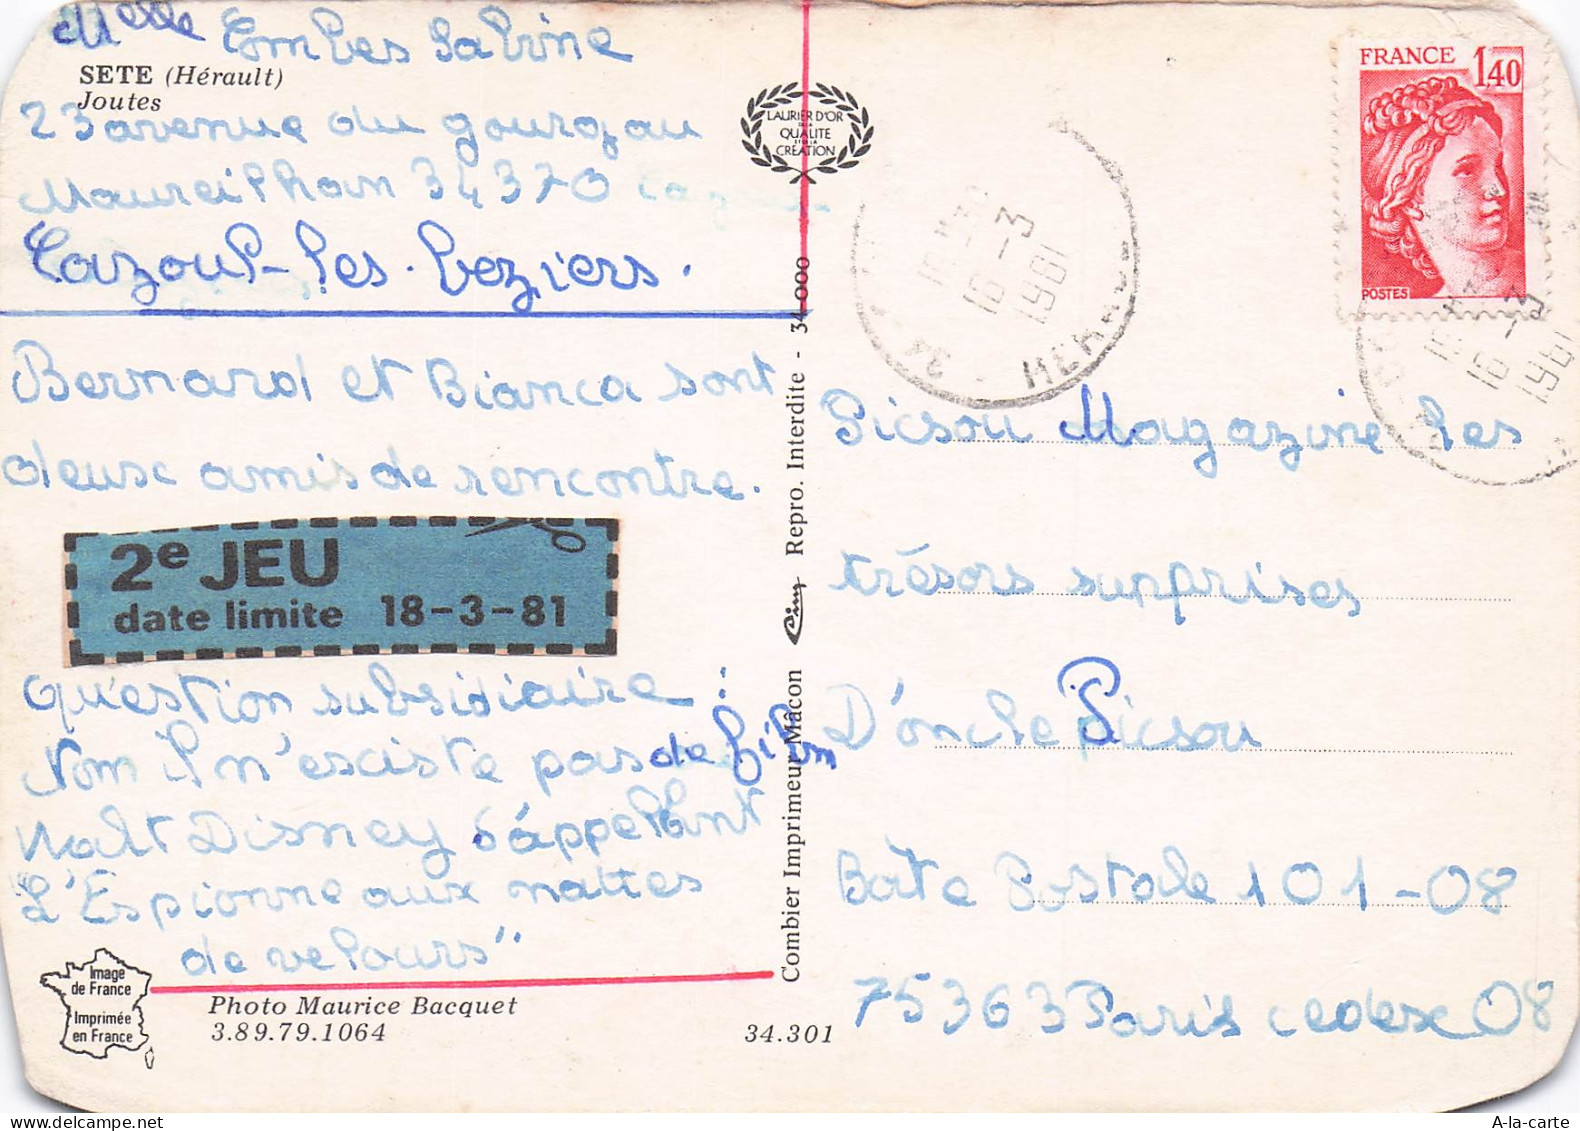 Melle Combes Sabine
SETE (Hérault)
Joutes
23 avenue du gourgau
Maureilhan 34370
Cazoul-les-beziers.
Bernard et Bianca sont
deusc amis de rencontre.
2e JEU
date limite 18-3-81
Qu'estion subsidiaire :
Nom il n'esciste pas de film
Walt Disney s'appellant
L'Espionne aux nattes
de velours"
Image
de France
Imprimée
en France
Photo Maurice Bacquet
3.89.79.1064
34.301
LAURIER D'OR
DE LA
QUALITE
ET DE LA
CREATION
Combier Imprimeur Mâcon Cim Repro. Interdite - 34-000
FRANCE 1,40
POSTES
16 -3
1981
34 - HERAULT
16 -3
1981
Picsou Magazine les
trésors surprises
D'oncle Picsou
Boite Postale 101-08
75363 Paris cedesc 08
A-la-carte